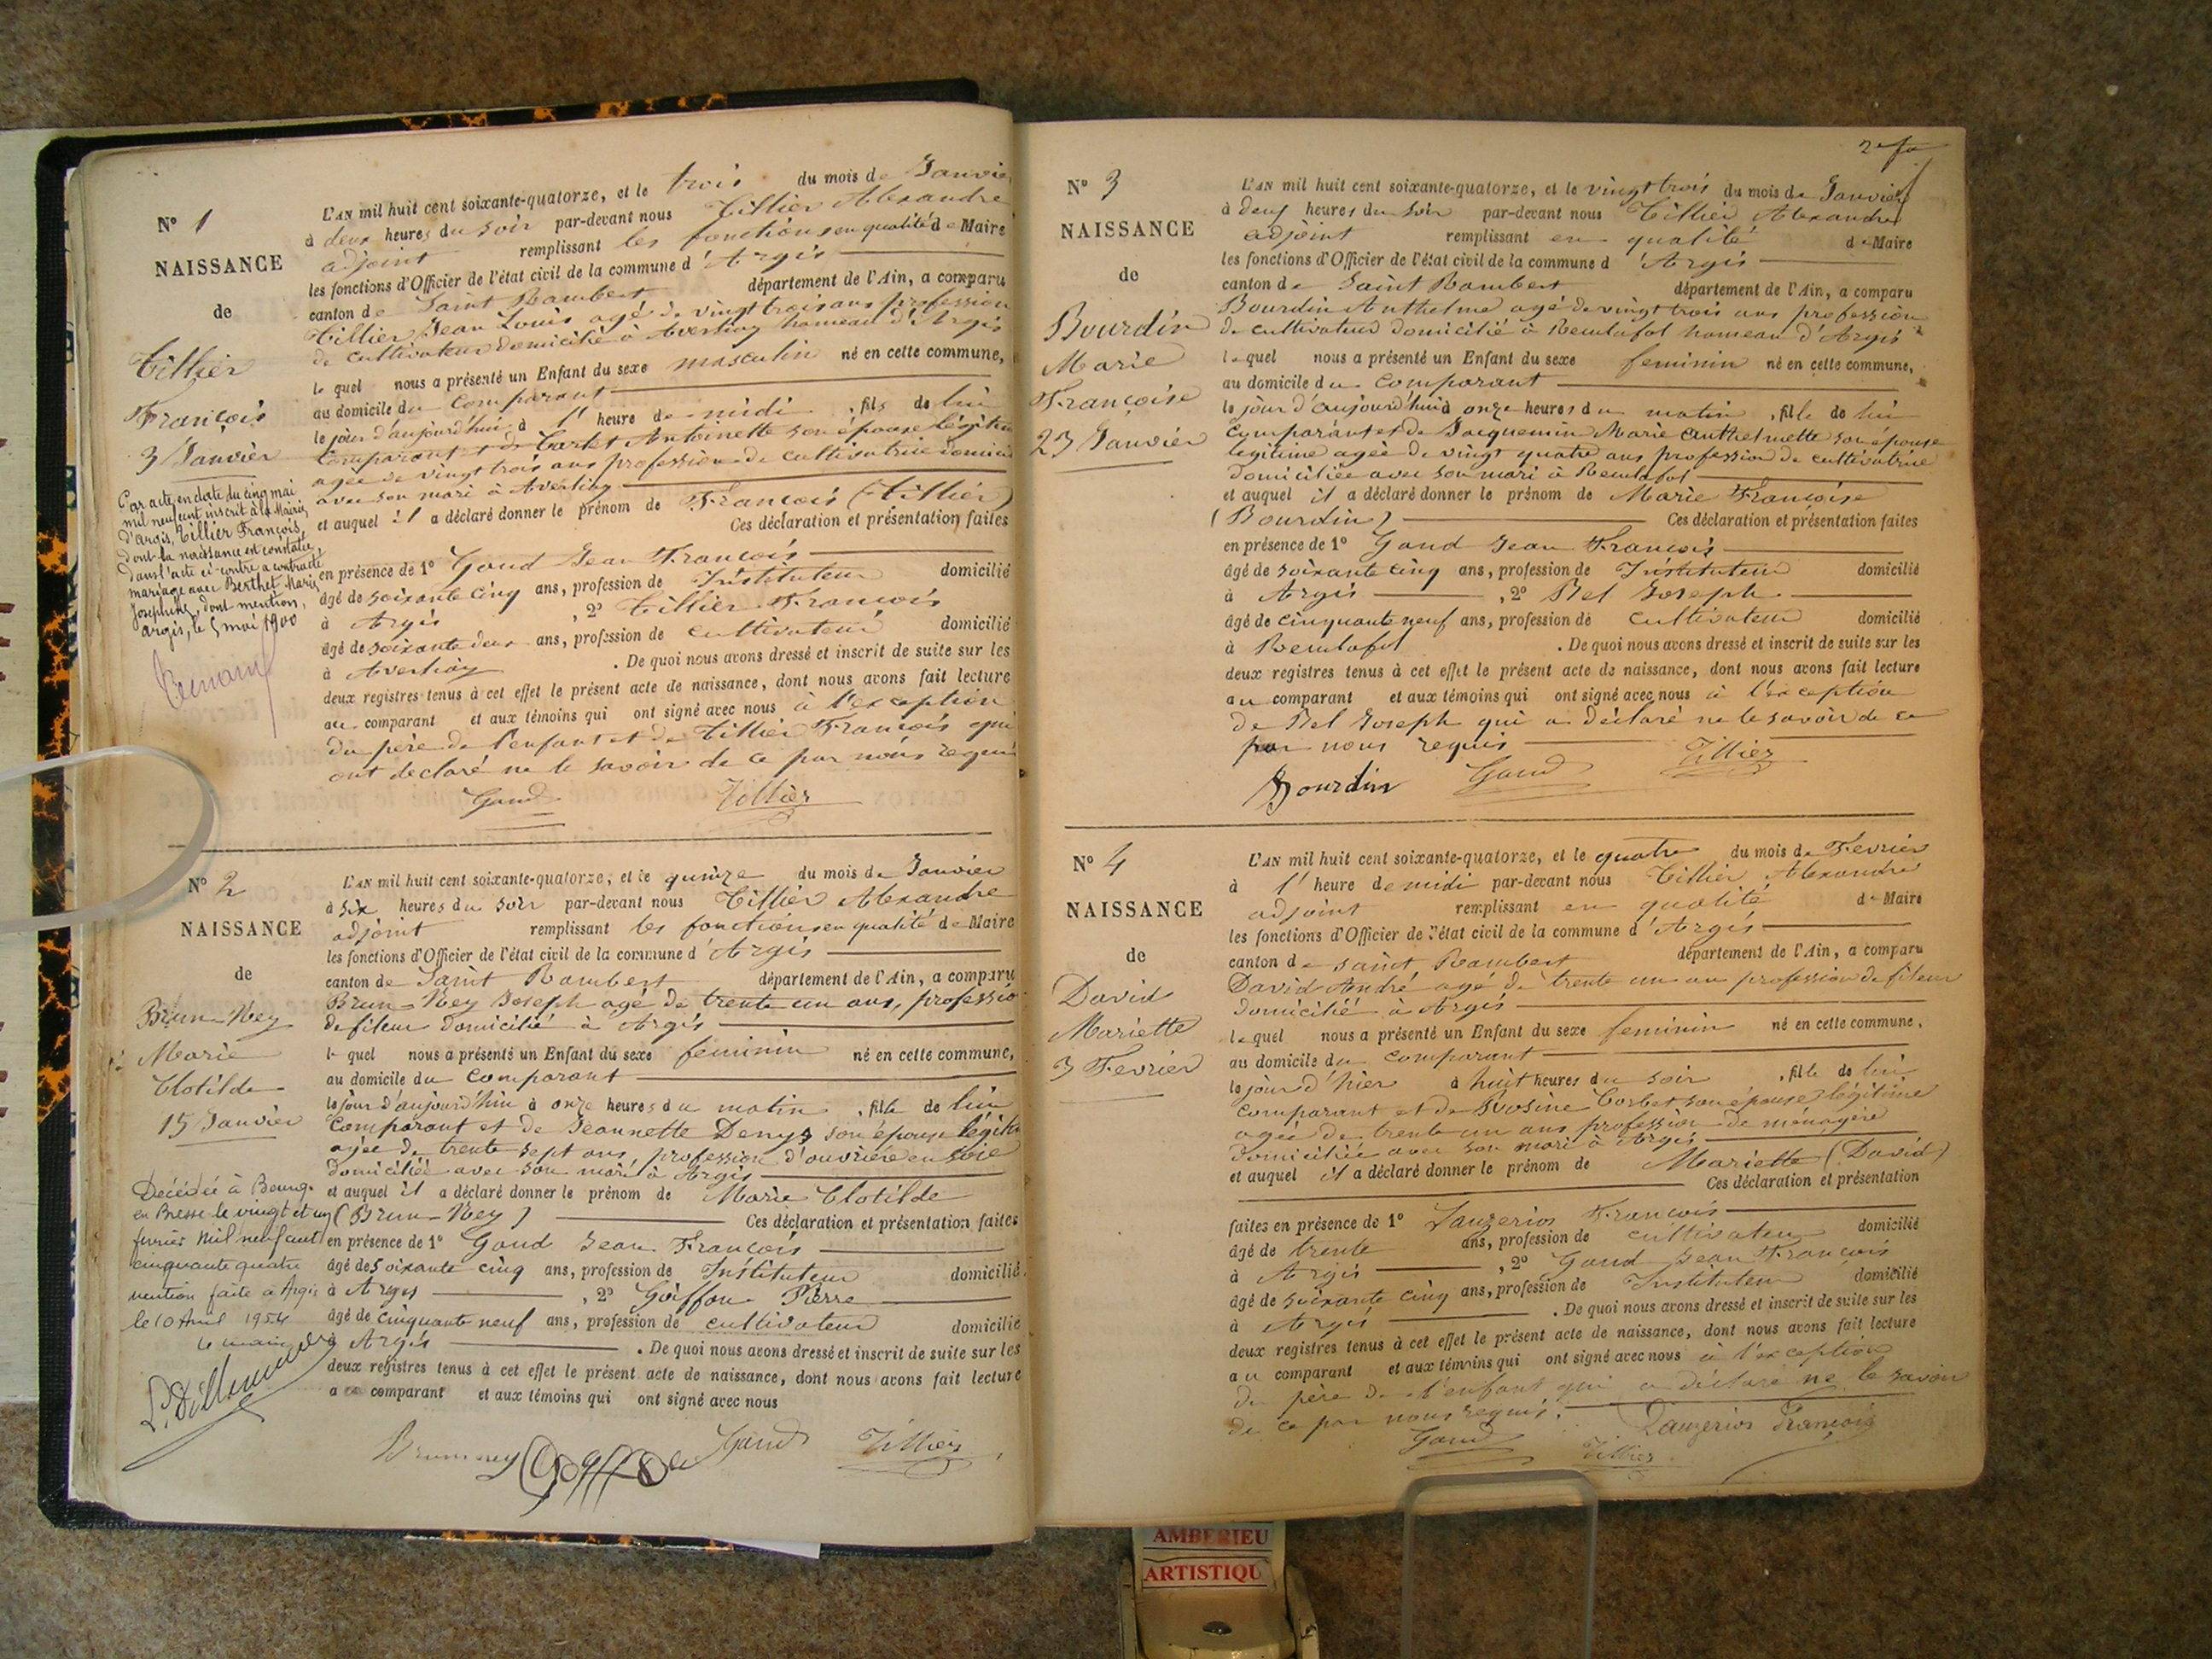 N° 1
NAISSANCE
de
Tillier
François
3 Janvier
Par acte en date du cinq mai
mil neuf cent inscrit à la Mairie
d'Argis, Tillier François,
dont la naissance est constatée
dans l'acte ci-contre a contracté
mariage avec Berthet Marie
Josephine, dont mention,
Argis, le 5 mai 1900
L'AN mil huit cent soixante-quatorze, et le trois du mois de Janvier
à deux heures du soir par-devant nous Tillier Alexandre
adjoint remplissant les fonctions en qualité de Maire
les fonctions d'Officier de l'état civil de la commune d'Argis
canton de Saint Rambert département de l'Ain, a comparu
Tillier Jean Louis agé de vingt trois ans profession
de cultivateur domicilié à Averliaz hameau d'Argis
lequel nous a présenté un Enfant du sexe masculin né en cette commune,
au domicile du comparant
le jour d'aujourd'hui à l' heure de midi, fils de lui
comparant et de Cartet Antoinette son épouse légitime
agée de vingt trois ans profession de cultivatrice domicil
avec son mari à Averliaz
et auquel il a déclaré donner le prénom de François (Tillier)
Ces déclaration et présentation faites
en présence de 1° Goud Jean François
âgé de soixante cinq ans, profession de Instituteur domicilié
à Argis, 2° Tillier François
âgé de soixante deux ans, profession de cultivateur domicilié
à Averliaz. De quoi nous avons dressé et inscrit de suite sur les
deux registres tenus à cet effet le présent acte de naissance, dont nous avons fait lecture
au comparant et aux témoins qui ont signé avec nous à l'exception
du père de l'enfant et de Tillier François qui
ont declaré ne le savoir de ce par nous requis
Goud Tillier
N° 2
NAISSANCE
de
Brun-Ney
Marie
Clotilde
15 Janvier
Décédée à Bourg-
en Bresse le vingt et un
fevrier mil neuf cent
cinquante quatre
mention faite à Argis
le 10 Avril 1954
le maire
L'AN mil huit cent soixante-quatorze, et le quinze du mois de Janvier
à six heures du soir par-devant nous Tillier Alexandre
adjoint remplissant les fonctions en qualité de Maire
les fonctions d'Officier de l'état civil de la commune d'Argis
canton de Saint Rambert département de l'Ain, a comparu
Brun-Ney Joseph agé de trente un ans, professio
de fileur domicilié à Argis
lequel nous a présenté un Enfant du sexe feminin né en cette commune,
au domicile du comparant
le jour d'aujourd'hui à onze heures du matin, fille de lui
comparant et de Jeannette Denys son épouse légiti
agée de trente sept ans, profession d'ouvrière en soie
domiciliée avec son mari à Argis
et auquel il a déclaré donner le prénom de Marie Clotilde
(Brun-Ney) Ces déclaration et présentation faites
en présence de 1° Goud Jean François
âgé de soixante cinq ans, profession de Instituteur domicilié
à Argis, 2° Goiffon Pierre
âgé de cinquante neuf ans, profession de cultivateur domicilié
à Argis. De quoi nous avons dressé et inscrit de suite sur les
deux registres tenus à cet effet le présent acte de naissance, dont nous avons fait lecture
au comparant et aux témoins qui ont signé avec nous
Brunney Goiffon Goud Tillier
N° 3
NAISSANCE
de
Bourdin
Marie
Françoise
23 Janvier
L'AN mil huit cent soixante-quatorze, et le vingt trois du mois de Janvier
à deux heures du soir par-devant nous Tillier Alexandre
adjoint remplissant en qualité de Maire
les fonctions d'Officier de l'état civil de la commune d'Argis
canton de Saint Rambert département de l'Ain, a comparu
Bourdin Anthelme agé de vingt trois ans profession
de cultivateur domicilié à Reculafol hameau d'Argis
lequel nous a présenté un Enfant du sexe feminin né en cette commune,
au domicile du comparant
le jour d'aujourd'hui à onze heures du matin, fille de lui
comparant et de Jacquemin Marie Anthelmette son épouse
légitime agée de vingt quatre ans profession de cultivatrice
domiciliée avec son mari à Reculafol
et auquel il a déclaré donner le prénom de Marie Françoise
(Bourdin) Ces déclaration et présentation faites
en présence de 1° Goud Jean François
âgé de soixante cinq ans, profession de Instituteur domicilié
à Argis, 2° Bel Joseph
âgé de cinquante neuf ans, profession de cultivateur domicilié
à Reculafol. De quoi nous avons dressé et inscrit de suite sur les
deux registres tenus à cet effet le présent acte de naissance, dont nous avons fait lecture
au comparant et aux témoins qui ont signé avec nous à l'exception
de Bel Joseph qui a déclaré ne le savoir de ce
par nous requis
Bourdin Goud Tillier
N° 4
NAISSANCE
de
David
Mariette
3 Fevrier
L'AN mil huit cent soixante-quatorze, et le quatre du mois de Fevrier
à l' heure de midi par-devant nous Tillier Alexandre
adjoint remplissant en qualité de Maire
les fonctions d'Officier de l'état civil de la commune d'Argis
canton de saint Rambert département de l'Ain, a comparu
David André agé de trente un an profession de fileur
domicilié à Argis
lequel nous a présenté un Enfant du sexe feminin né en cette commune,
au domicile du comparant
le jour d'hier à huit heures du soir, fille de lui
comparant et de Rosine Corbet son épouse légitime
agée de trente un ans profession de ménagère
domiciliée avec son mari à Argis
et auquel il a déclaré donner le prénom de Mariette (David)
Ces déclaration et présentation
faites en présence de 1° Lauzerios François
âgé de trente ans, profession de cultivateur domicilié
à Argis, 2° Goud Jean François
âgé de soixante cinq ans, profession de Instituteur domicilié
à Argis. De quoi nous avons dressé et inscrit de suite sur les
deux registres tenus à cet effet le présent acte de naissance, dont nous avons fait lecture
au comparant et aux témoins qui ont signé avec nous à l'exception
du père de l'enfant qui a déclaré ne le savoir
de ce par nous requis.
Lauzerios François
Goud Tillier
AMBERIEU
ARTISTIQU